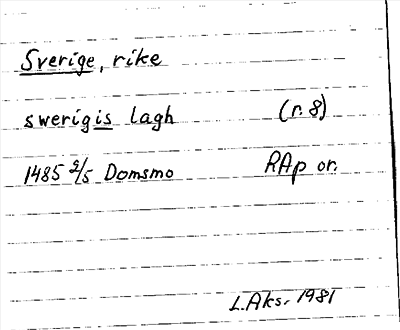 Sverige, rike
swerigis lagh (r. 8)
1485 2/5 Domsmo RAp or.
L. Aks. 1981